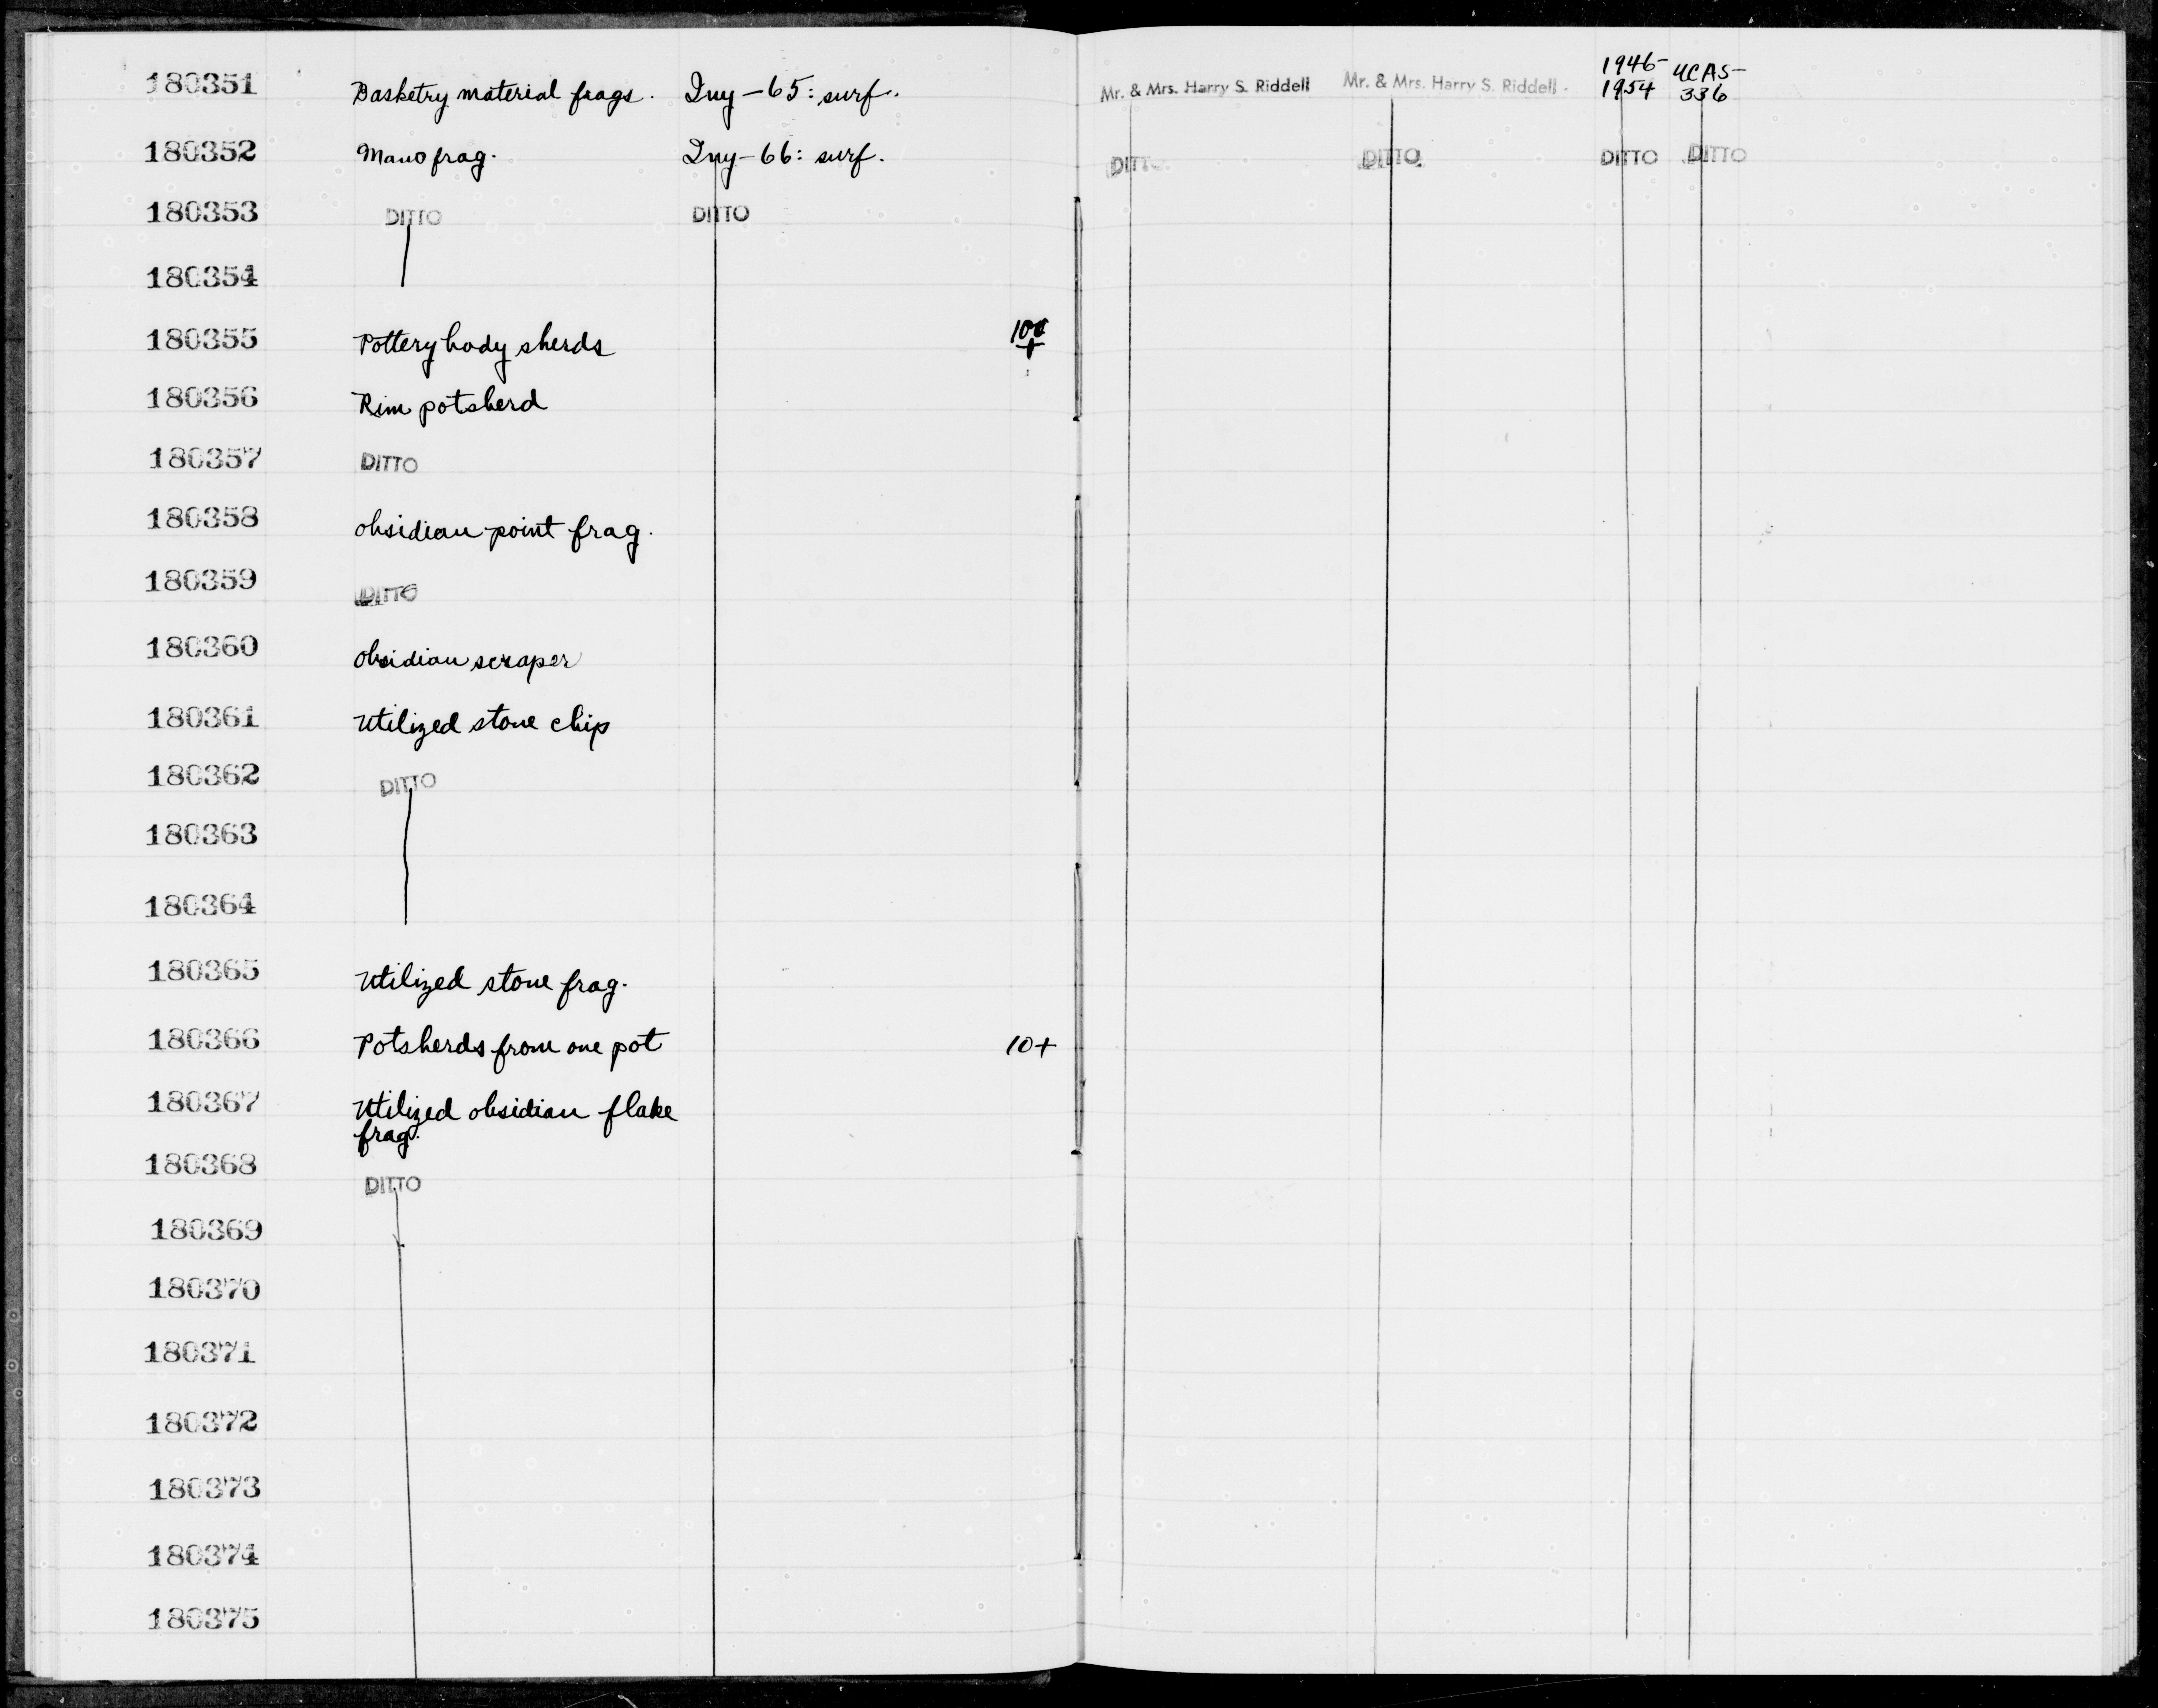 180351 Basketry material frags. Iny-65: surf. Mr. & Mrs. Harry S. Riddell Mr. & Mrs. Harry S. Riddell 1946-1954 UCAS-336
180352 Mano frag. Iny-66: surf. DITTO DITTO DITTO DITTO
180353 DITTO DITTO
180354
180355 Pottery body sherds
180356 Rim potsherd
180357 DITTO
180358 obsidian point frag.
180359 DITTO
180360 obsidian scraper
180361 Utilized stone chip
180362 DITTO
180363
180364
180365 Utilized stone frag.
180366 Potsherds from one pot 10+
180367 Utilized obsidian flake
frag.
180368 DITTO
180369
180370
180371
180372
180373
180374
180375